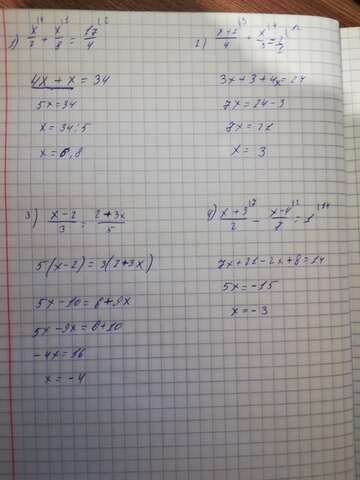 1) x/2 |4 + x/8 |1 = 17/4 |2
4x + x = 34
5x = 34
x = 34 : 5
x = 6,8
2) x+1/4 |3 + x/3 |4 = 2 |12
3x + 3 + 4x = 24
7x = 24 - 3
7x = 21
x = 3
3) x-2/3 = 2+3x/5
5(x-2) = 3(2+3x)
5x - 10 = 6 + 9x
5x - 9x = 6 + 10
-4x = 16
x = -4
4) x+3/2 |7 - x-4/7 |2 = 1 |14
7x + 21 - 2x + 8 = 14
5x = -15
x = -3